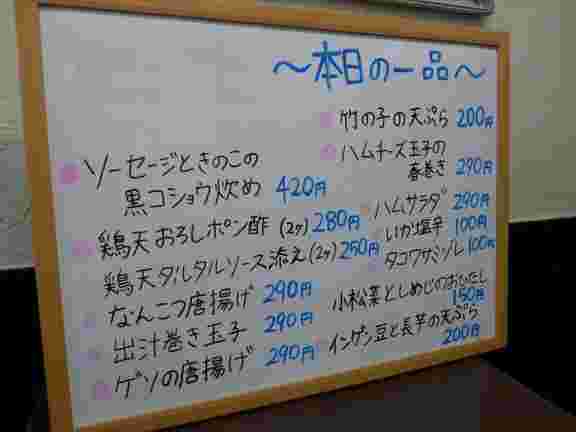 ～本日の一品～
竹の子の天ぷら 200円
ハムチーズ玉子の
春巻き 290円
ハムサラダ 290円
いか塩辛 100円
タコワサミゾレ 100円
小松菜としめじのおひたし
150円
インゲン豆と長芋の天ぷら
200円
ソーセージときのこの
黒コショウ炒め 420円
鶏天おろしポン酢 (2ヶ) 280円
鶏天タルタルソース添え (2ヶ) 250円
なんこつ唐揚げ 290円
出汁巻き玉子 290円
ゲソの唐揚げ 290円